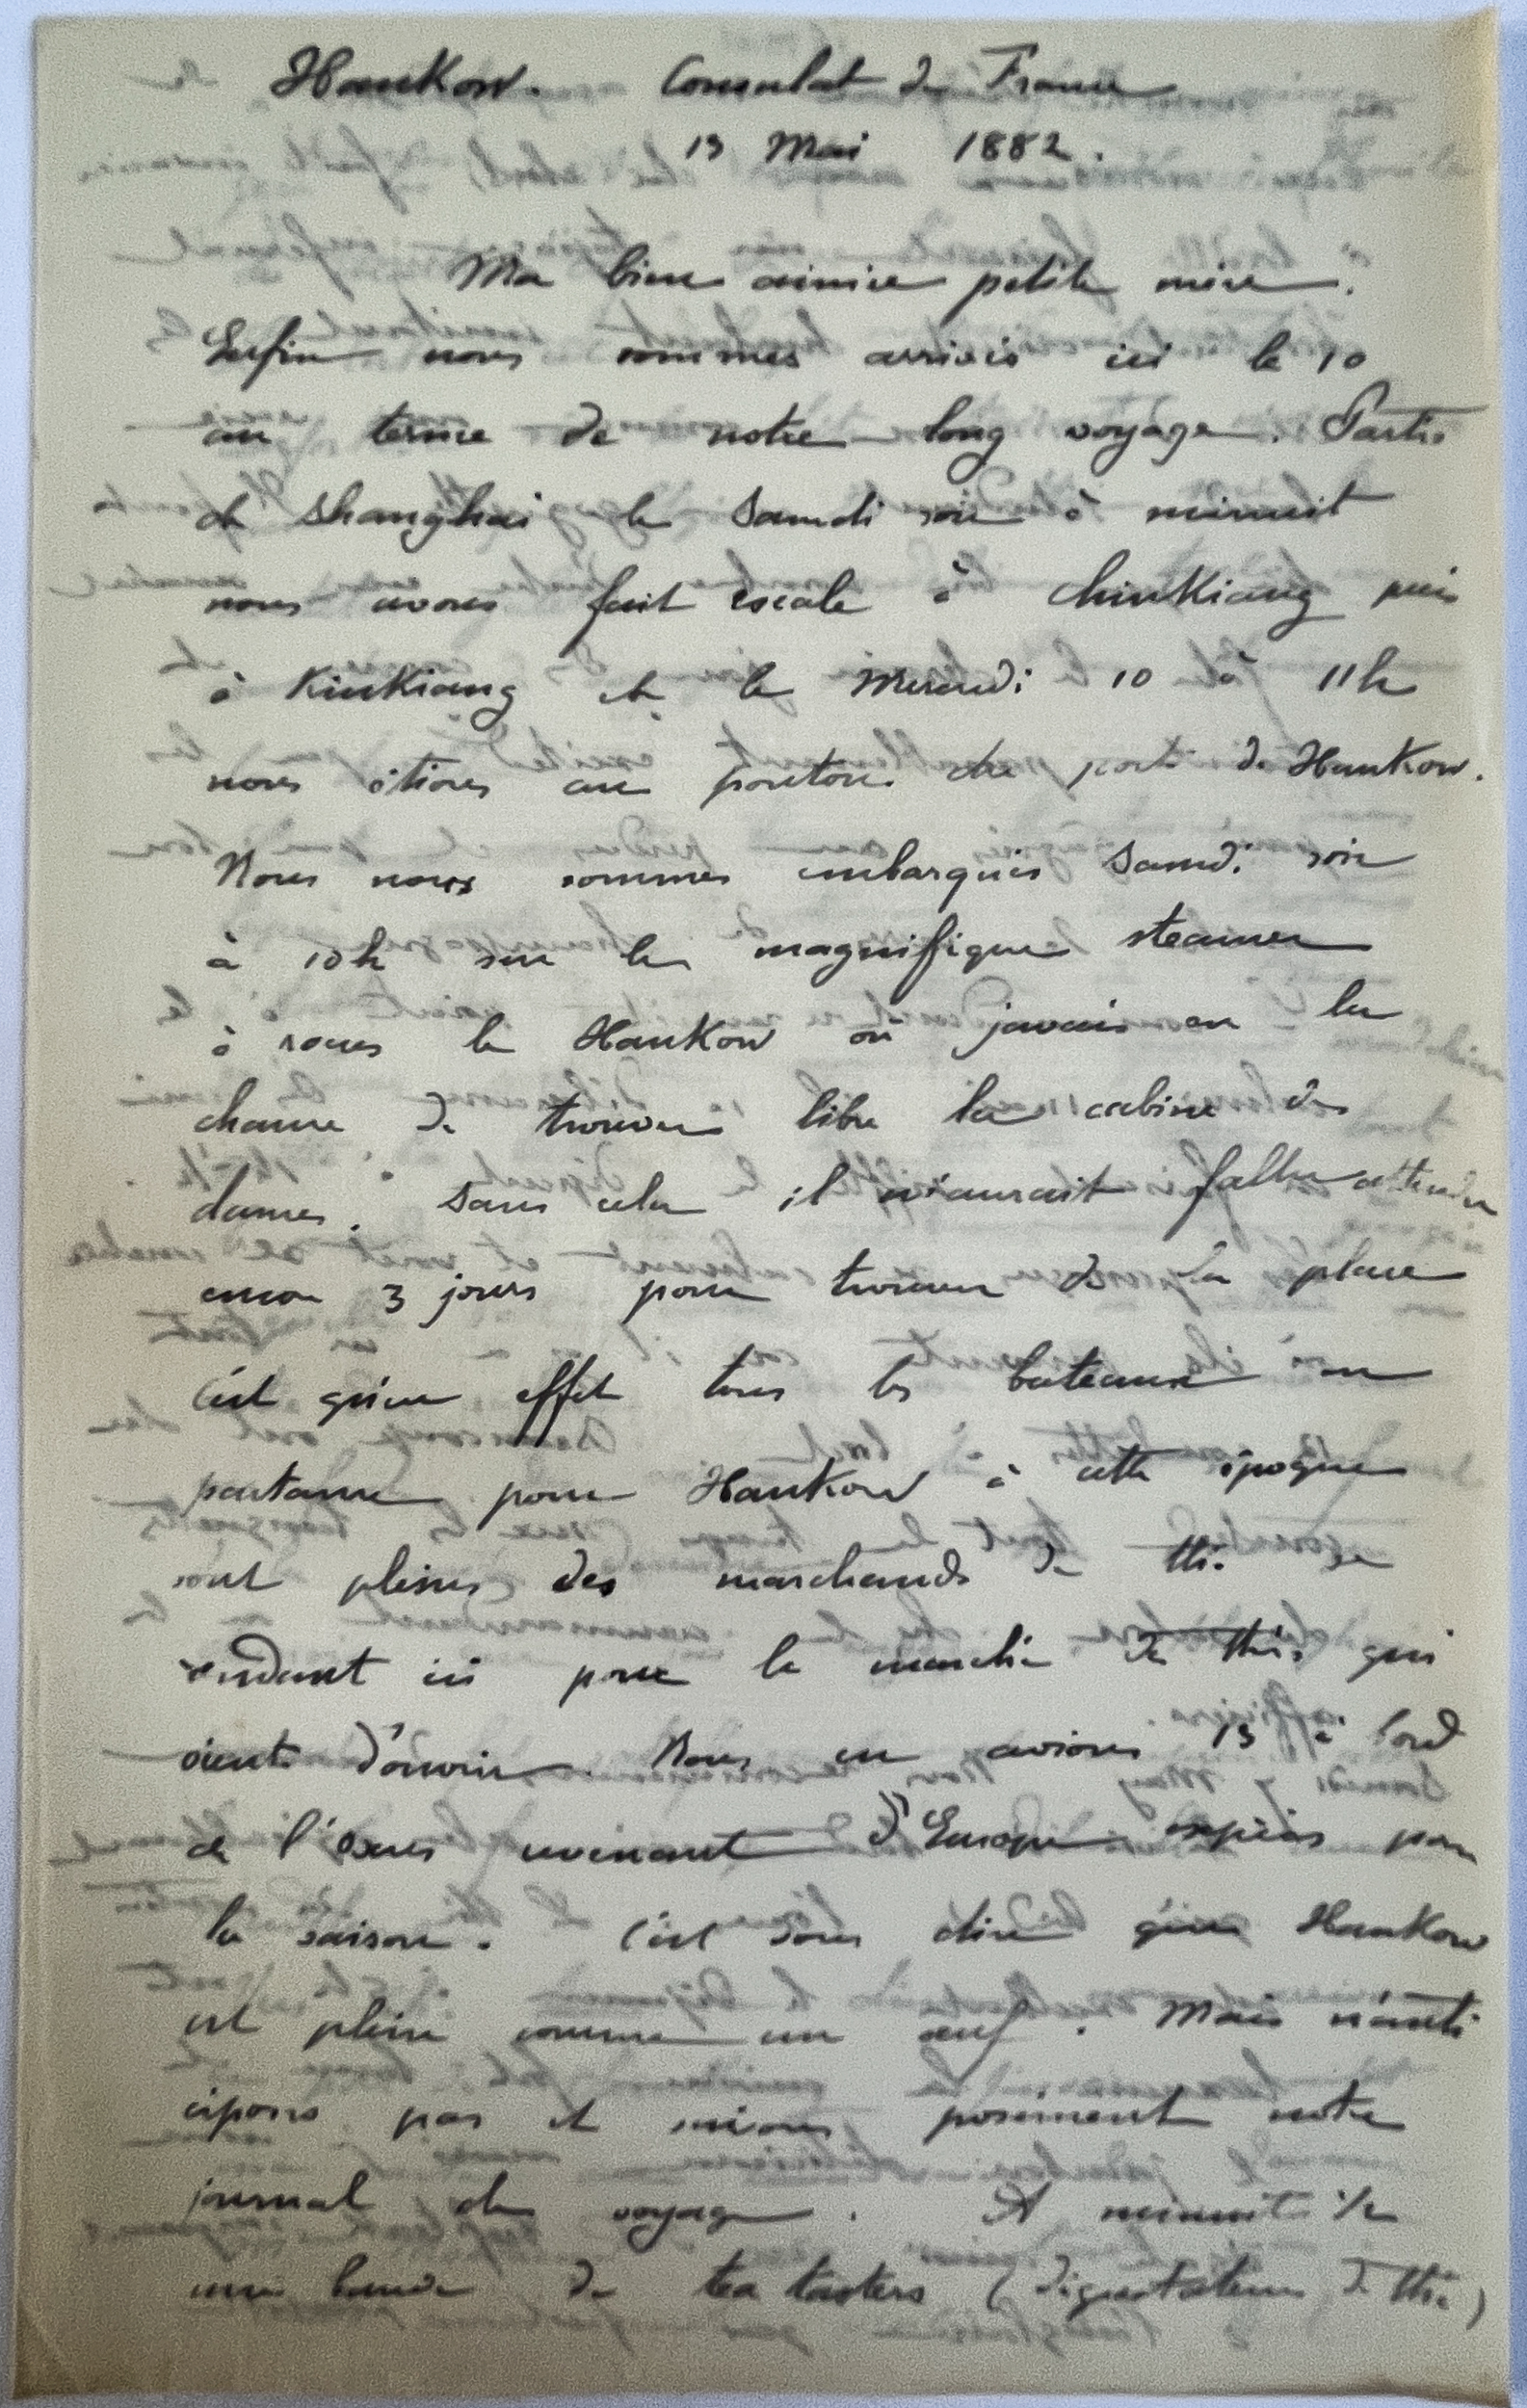 Hankow. Consulat de France
13 Mai 1882.
Ma bien aimée petite mère.
Enfin nous sommes arrivés ici le 10
au terme de notre long voyage. Partis
de Shanghai le Samdi soir à minuit
nous avons fait escale à Chinkiang puis
à Kiukiang et le Mercredi 10 à 11h
nous étions au ponton du port de Hankow.
Nous nous sommes embarqués Samdi soir
à 10h sur le magnifique steamer
à roues le Hankow où j'avais eu la
chance de trouver libre la cabine des
dames. Sans cela il m'aurait fallu attendre
encore 3 jours pour trouver de la place
c'est qu'en effet tous les bateaux en
partance pour Hankow à cette époque
sont pleins des marchands de thé se
rendant ici pour le marché de thé, qui
vient d'ouvrir. Nous en avions 13 à bord
de l'Oxus revenant d'Europe exprès pour
la saison. C'est vous dire que Hankow
est plein comme un œuf. Mais n'anti
cipons pas et suivons posément notre
journal de voyage. A minuit 1/2
une bande de tea tasters (dégustateurs de thé)